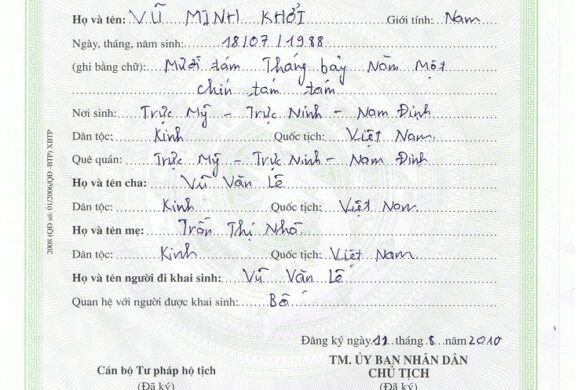 Họ và tên: VŨ MINH KHỞI Giới tính: Nam
Ngày, tháng, năm sinh: 18/07/1988
(ghi bằng chữ): Mười tám Tháng bảy Năm Một
chín tám tám
Nơi sinh: Trực Mỹ - Trực Ninh - Nam Định
Dân tộc: Kinh Quốc tịch: Việt Nam
Quê quán: Trực Mỹ - Trực Ninh - Nam Định
Họ và tên cha: Vũ Văn Lê
Dân tộc: Kinh Quốc tịch: Việt Nam
Họ và tên mẹ: Trần Thị Nhõ
Dân tộc: Kinh Quốc tịch: Việt Nam
Họ và tên người đi khai sinh: Vũ Văn Lê
Quan hệ với người được khai sinh: Bố
Đăng ký ngày 11 tháng 8 năm 2010
Cán bộ Tư pháp hộ tịch
(Đã ký)
TM. ỦY BAN NHÂN DÂN
CHỦ TỊCH
(Đã ký)
2008 (QĐ số: 01/2006/QĐ-BTP) XBTP